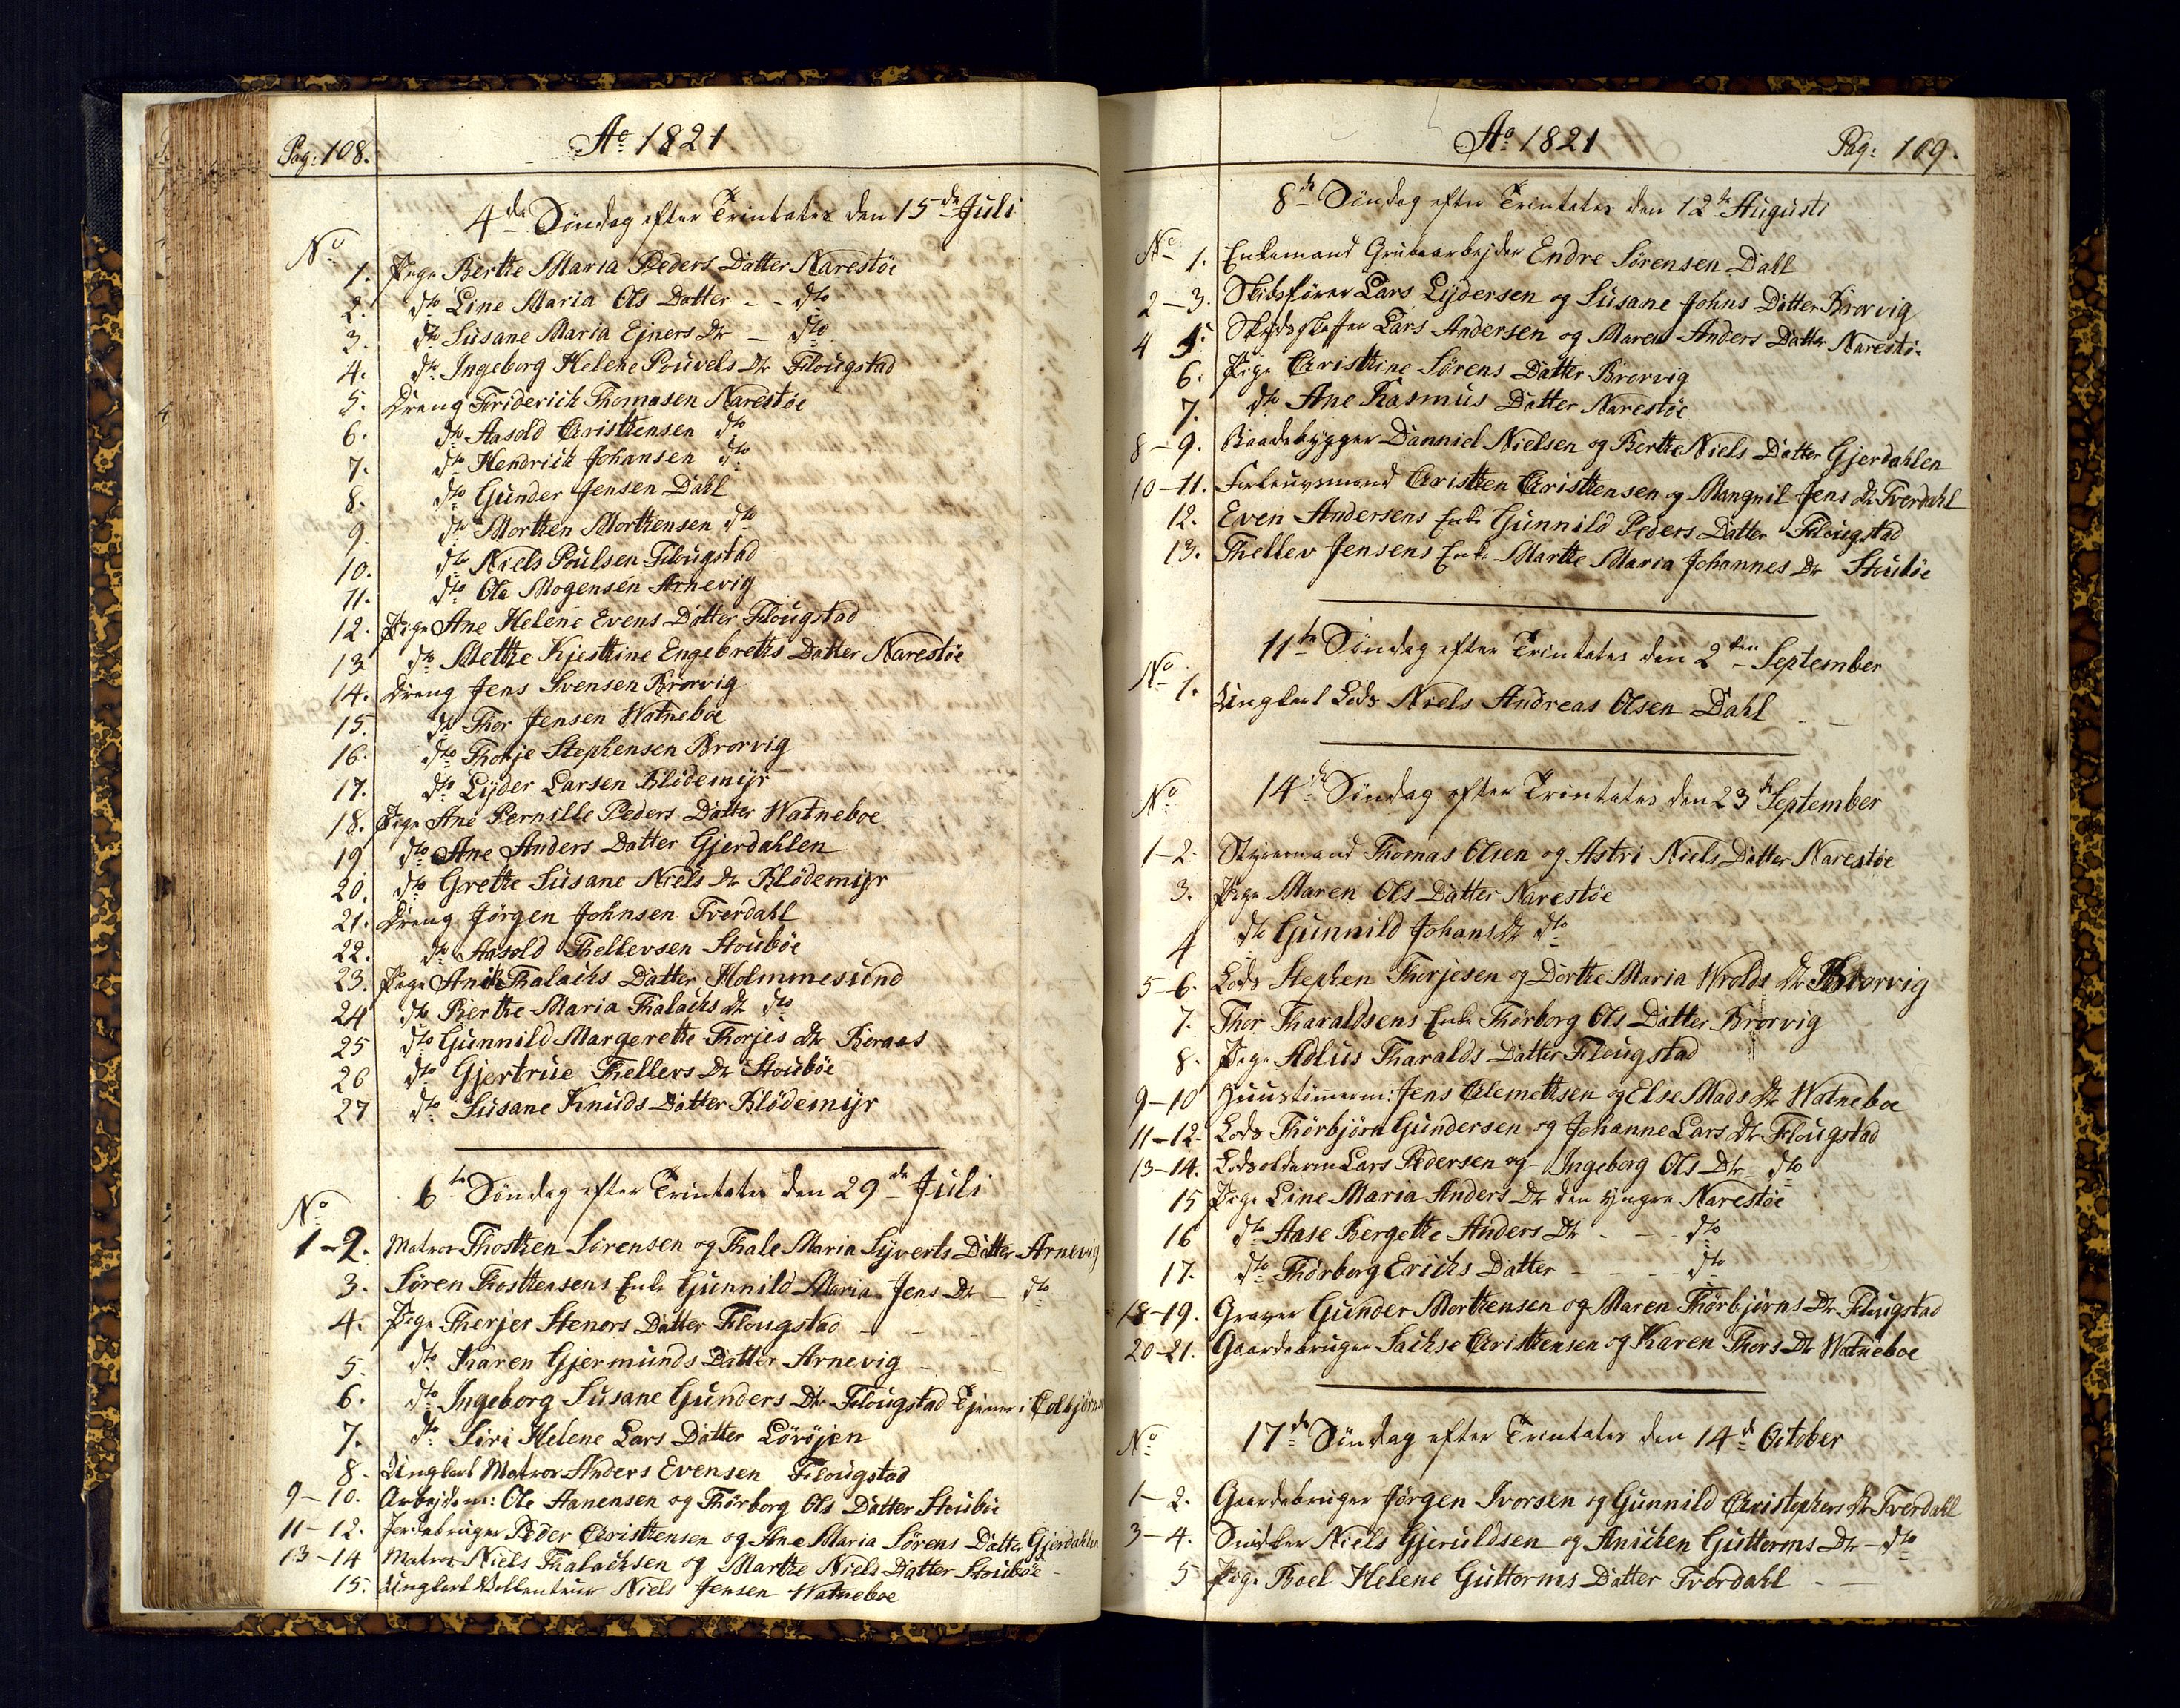 Pag: 108.
Ao 1821
4de Söndag efter Trinitatis den 15de Juli
No
1. Pige Berthe Maria Peders Datter Narestöe
2. dto Line Maria Ols Datter - - dto
3. dto Susane Maria Ejners Dtr - dto
4. dto Ingeborg Helene Pouvels Dtr Flougstad
5. Dreng Friderich Thomasen Narestöe
6. dto Aasold Christhensen dto
7. dto Hendrich Johansen dto
8. dto Gunder Jensen Dahl
9. dto Morthen Morthensen dto
10. dto Niels Poulsen Flougstad
11. dto Ole Mogensen Arnevig
12. Pige Ane Helene Evens Datter Flougstad
13 dto Methe Kjesthine Engebreths Datter Narestöe
14. Dreng Jens Svensen Brorvig
15. dto Thor Jensen Watneboe
16. dto Thorje Stephensen Brorvig
17. dto Lyder Larsen Blödemyr
18. Pige Ane Pernille Peders Datter Watneboe
19 dto Ane Anders Datter Gjerdahlen
20. dto Grethe Susane Niels Dtr Blödemyr
21. Dreng Jörgen Johnsen Tverdahl
22. dto Aasold Thellevsen Stouböe
23. Pige Anne Thalachs Datter Holmmesund
24 dto Berthe Maria Thalachs Dtr dto
25 dto Gunnild Margerethe Thorjes Dtr Boraas
26 dto Gjertrue Thellevs Dtr Stouböe
27 dto Susane Knuds Datter Blödemyr
6te Söndag efter Trinitatis den 29de Juli
No
1-2. Matros Thosthen Sörensen og Thale Maria Syverts Datter Arnevig
3. Sören Thosthensens Enke Gunnild Maria Jens Dtr - dto
4. Pige Therjer Stenors Datter Flougstad - - -
5. dto Karen Gjermunds Datter Arnevig - -
6. dto Ingeborg Susane Gunders Dtr Flougstad tjener i Colbjörns
7. dto Siri Helene Lars Datter Lövöjen
8. Ungkarl Matros Anders Evensen Flougstad
9-10. Arbejdsm: Ole Aanensen og Thörborg Ols Datter Stouböe
11-12. Jordebruger Peder Christhensen og Ane Maria Sörens Datter Gjerdahlen
13-14 Matros Niels Thalachsen og Marthe Niels Datter Stouböe -
15. Ungkarl Vollenteur Niels Jensen Watneboe
Ao 1821
Pag: 109.
8de Söndag efter Trinitatis den 12te Augusti
No 1. Enkemand Grubearbejder Endre Sörensen Dahl
2-3. Skibsförer Lars Lydersen og Susane Johns Datter Brorvig
4 5. Skydsskaffer Lars Andersen og Maren Anders Datter Narestöe
6. Pige Christhine Sörens Datter Brorvig
7. dto Ane Rasmus Datter Narestöe
8-9. Baadebygger Danniel Nielsen og Berthe Niels Datter Gjerdahlen
10-11. Forleugsmand Christhen Christhensen og Mangnil Jens Dtr Tverdahl
12. Even Andersens Enke Gunnild Peders Datter Flougstad
13. Thellev Jensens Enke Marthe Maria Johannes Dtr Stouböe
11te Söndag efter Trinitatis den 2den September
No 1. Ungkarl Lods Niels Andreas Olsen Dahl - -
14de Söndag efter Trinitatis den 23de September
No
1-2. Styrmand Thomas Olsen og Astri Niels Datter Narestöe
3. Pige Maren Ols Datter Narestöe
4 dto Gunnild Johans Dtr dto
5-6. Lods Stephen Thorjesen og Dorthe Maria Wrolds Dtr Brorvig
7. Thor Tharaldsens Enke Thörborg Ols Datter Brorvig
8. Pige Adlus Tharalds Datter Flougstad
9-10 Huustömerm: Jens Clemethsen og Else Mads Dtr Watneboe
11-12. Lods Thörbjörn Gundersen og Johanne Lars Dtr Flougstad
13-14. Lodsolderm Lars Pedersen og Ingeborg Ols Dtr dto
15 Pige Line Maria Anders Dtr den yngre Narestöe
16 dto Aase Bergethe Anders Dtr - - - dto
17. dto Thörborg Erichs Datter - - - - dto
18-19. Graver Gunder Morthensen og Maren Thörbjörns Dtr Flougstad
20-21. Gaardebruger Sachse Christhensen og Karen Thors Dtr Watneboe
17de Söndag efter Trinitatis den 14de October
No
1-2. Gaardebruger Jörgen Ivorsen og Gunnild Christophers Dtr Tverdahl
3-4. Snidker Niels Gjeruldsen og Anichen Guttorms Dtr - dto
5 Pige Boel Helene Guttorms Datter Tverdahl - -